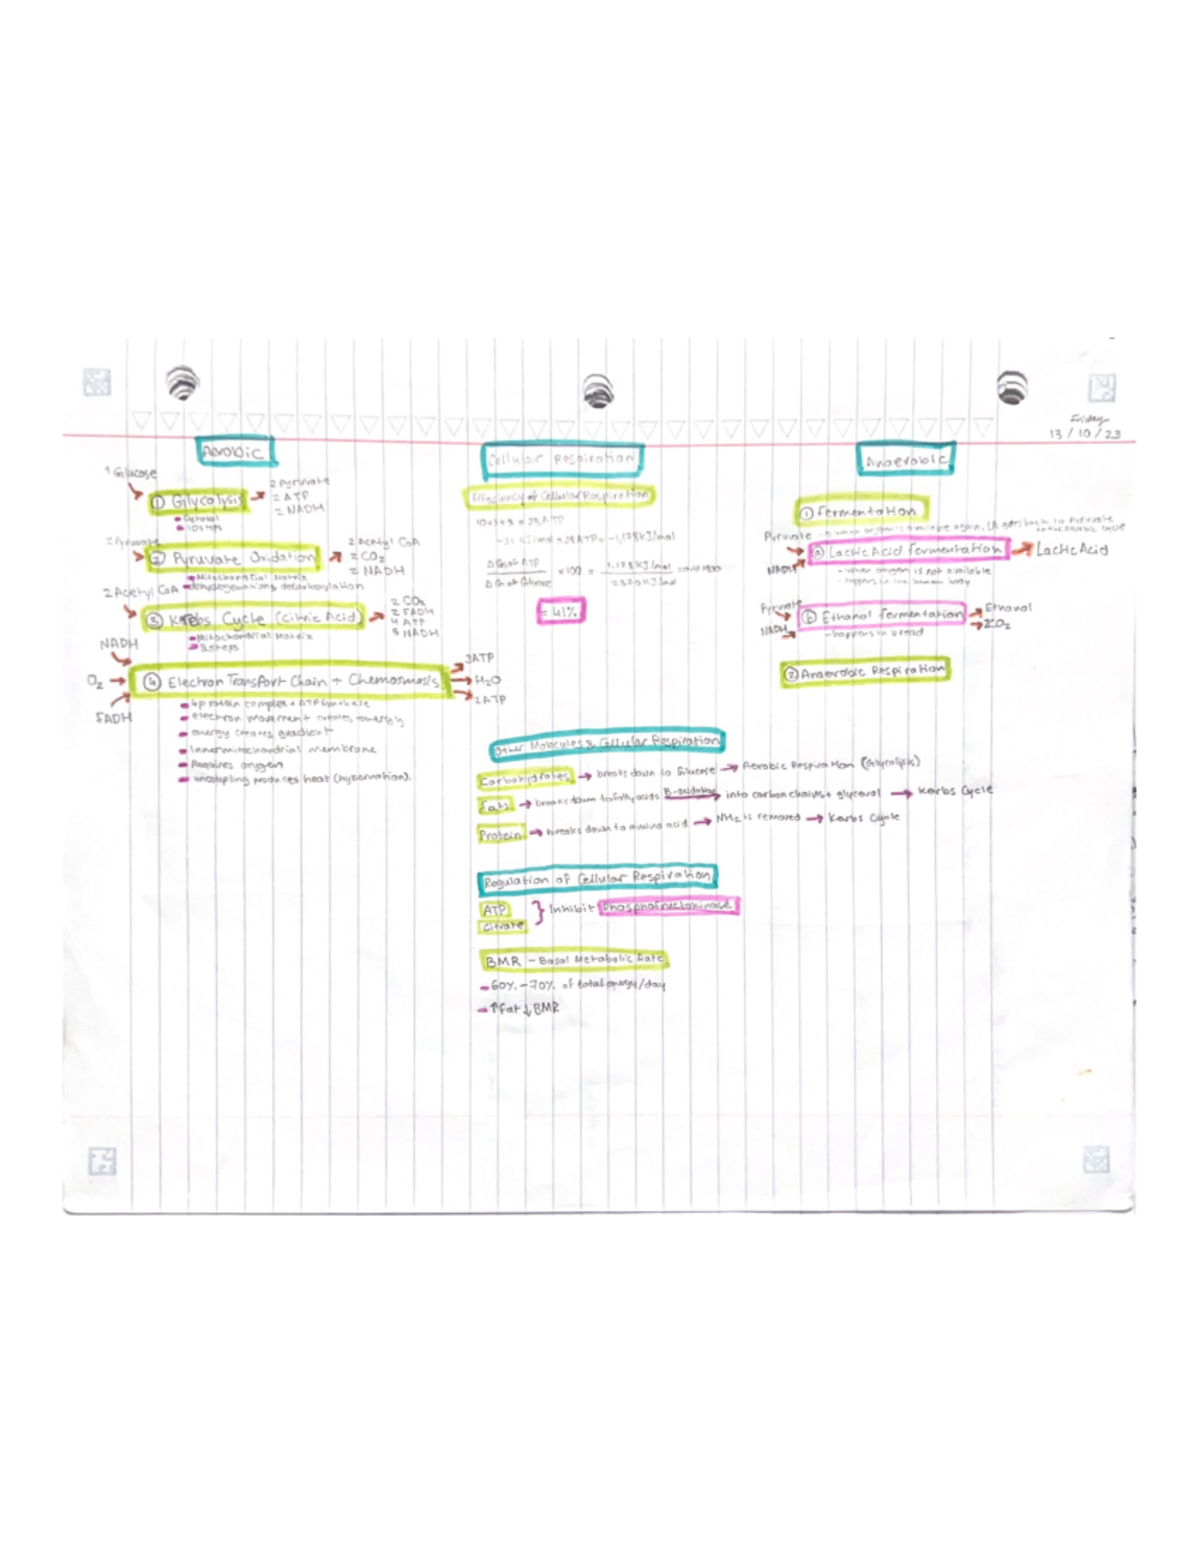 Friday
13/10/23
Aerobic
1 Glucose
① Glycolysis
2 Pyruvate
2 ATP
2 NADH
Cytosol
10 steps
2 Pyruvate
② Pyruvate Oxidation
2 Acetyl CoA
2 CO₂
2 NADH
Mitochondrial Matrix
dehydrogenation & decarboxylation
2 Acetyl CoA
③ Krebs Cycle (Citric Acid)
2 CO₂
2 FADH
4 ATP
NADH
Mitochondrial Matrix
8 steps
NADH
O₂
FADH
④ Electron Transport Chain + Chemosmosis
3ATP
H₂O
2ATP
4 protein complex + ATP Synthase
electron movement creates energy
energy creates gradient
Inner mitochondrial membrane
Requires oxygen
uncoupling produces heat (hybernation).
Cellular Respiration
Efficiency of Cellular Respiration
-31 KJ/mol x 38 ATP = -1,178 KJ/mol
ΔG of ATP
ΔG of Glucose
x100 =
1,178 KJ/mol
KJ/mol
= 41%
Other Molecules & Cellular Respiration
Carbohydrates → breaks down to Glucose → Aerobic Respiration (Glycolysis)
Fats → breaks down to fatty acids B-oxidation → into carbon chains + glycerol → Kerbs Cycle
Protein → breaks down to amino acid → NH₂ is removed → Kerbs Cycle
Regulation of Cellular Respiration
ATP
Citrate
} Inhibit Phosphofructokinase
BMR - Basal Metabolic Rate
→ 60% - 70% of total energy/day
→ ↑Fat ↓BMR
Anaerobic
① Fermentation
Pyruvate
NADH
ⓐ Lactic Acid Fermentation → Lactic Acid
- when oxygen is not available
- happens in the human body
Pyruvate
NADH
ⓑ Ethanol Fermentation
Ethanol
CO₂
- happens in bread
② Anaerobic Respiration